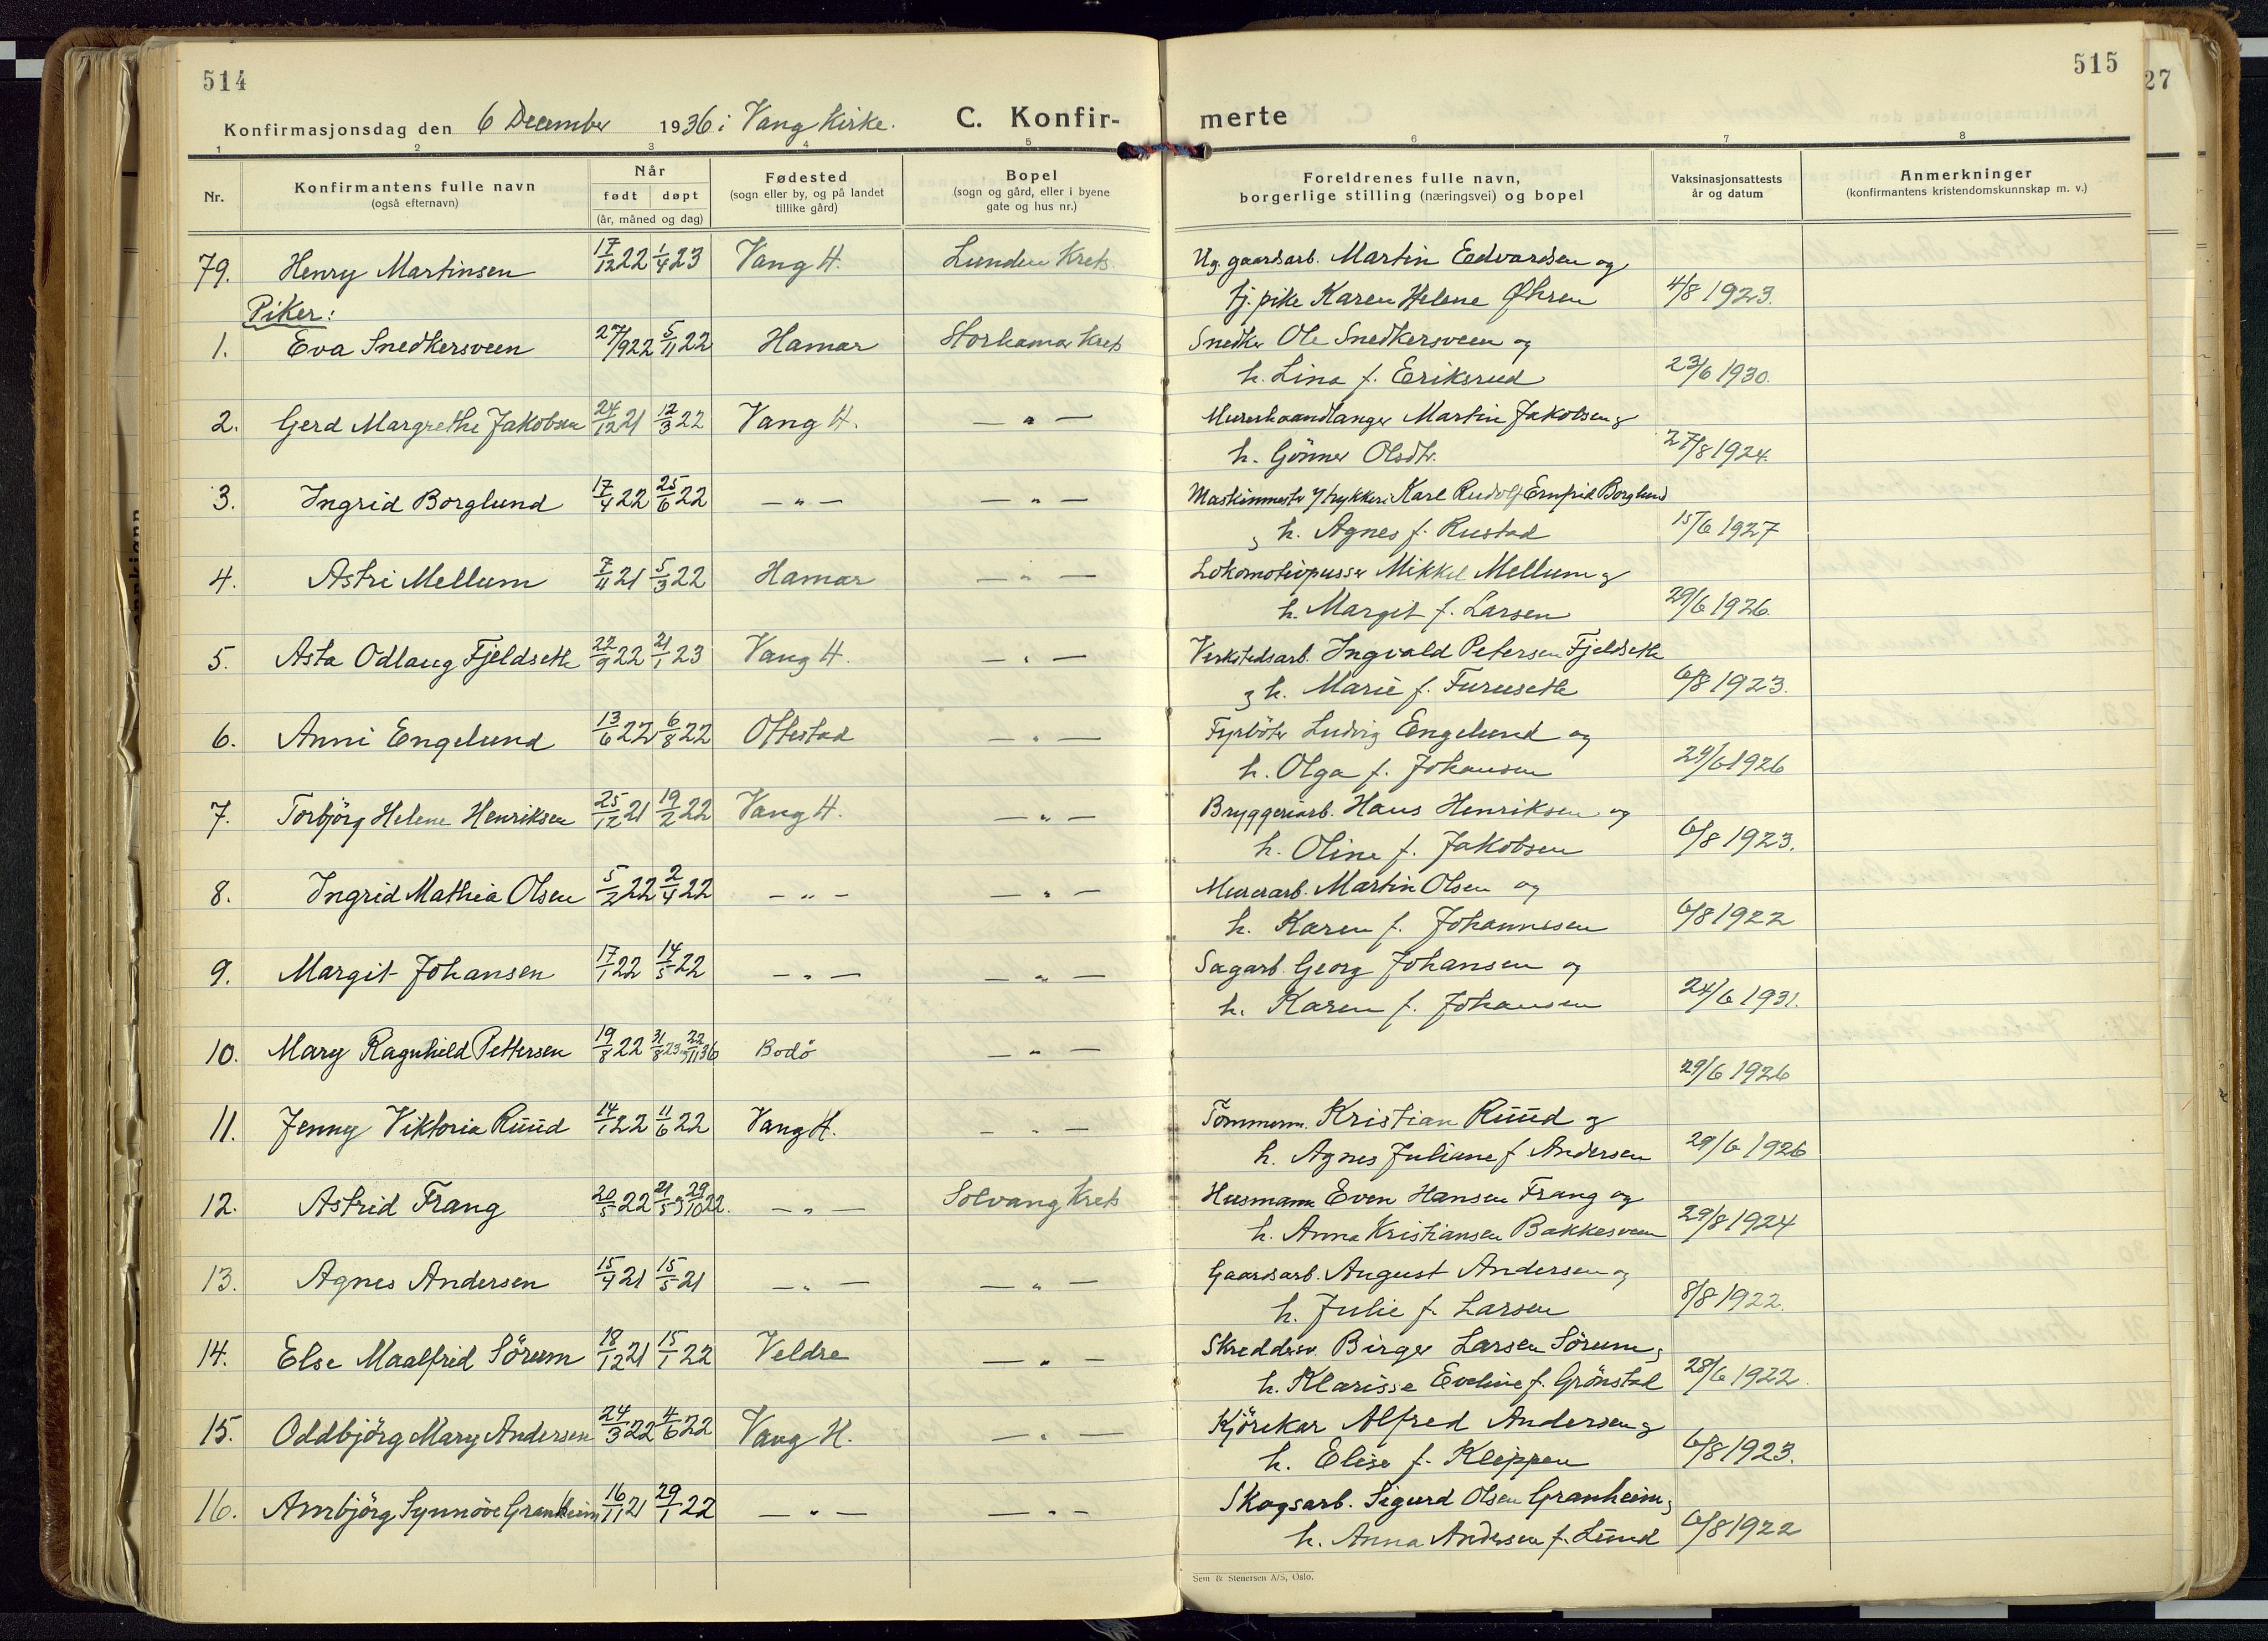 514
Konfirmasjonsdag den 6 December 1936 i Vang Kirke.
C. Konfir-
1 2 3 4 5
Nr.
Konfirmantens fulle navn
(også efternavn)
Når
født døpt
(år, måned og dag)
Fødested
(sogn eller by, og på landet
tillike gård)
Bopel
(sogn og gård, eller i byene
gate og hus nr.)
79. Henry Martinsen 17/12 22 1/4 23 Vang H. Lunden Krets
Piker:
1. Eva Snedkersveen 27/9 22 5/11 22 Hamar Storhamar Krets
2. Gerd Margrethe Jakobsen 24/12 21 12/3 22 Vang H. — " —
3. Ingrid Borglund 17/4 22 25/6 22 — " — — " —
4. Astri Mellum 7/11 21 5/3 22 Hamar — " —
5. Asta Odlaug Fjeldseth 22/9 22 21/1 23 Vang H. — " —
6. Anni Engelund 13/6 22 6/8 22 Ottestad — " —
7. Torbjörg Helene Henriksen 25/12 21 19/2 22 Vang H. — " —
8. Ingrid Mathea Olsen 5/2 22 2/4 22 — " — — " —
9. Margit Johansen 17/1 22 14/5 22 — " — — " —
10. Mary Ragnhild Pettersen 19/8 22 31/8 23 22/11 36 Bodö — " —
11. Jenny Viktoria Rūūd 14/1 22 11/6 22 Vang H. — " —
12. Astrid Frang 20/5 22 21/5 og 29/10 22. — " — Solvang Krets
13. Agnes Andersen 15/4 21 15/5 21 — " — — " —
14. Else Maalfrid Sörum 18/12 21 15/1 22 Veldre — " —
15. Oddbjörg Mary Andersen 24/3 22 4/6 22 Vang H. — " —
16. Annbjörg Synnöve Granheim 16/11 21 29/1 22 — " — — " —
515
27
merte
6 7 8
Foreldrenes fulle navn,
borgerlige stilling (næringsvei) og bopel
Vaksinasjonsattests
år og datum
Anmerkninger
(konfirmantens kristendomskunnskap m. v.)
Ug. gaardsarb. Martin Edvardsen og
tj. pike Karen Helene Øhren 4/8 1923.
Snedker Ole Snedkersveen og
h. Lina f. Eriksrud 23/6 1930.
Murerhaandlanger Martin Jakobsen og
h. Gönner Olsdtr. 27/8 1924.
Maskinmester y trykkeri Karl Rudolf Ernfrid Borglund
og h. Agnes f. Rustad 15/6 1927
Lokomotivpusser Mikkel Mellum og
h. Margit f. Larsen 29/6 1926.
Verkstedsarb. Ingvald Petersen Fjeldseth
og h. Marie f. Furuseth 6/8 1923.
Fyrböter Ludvig Engelund og
h. Olga f. Johansen 29/6 1926
Bryggeriarb. Hans Henriksen og
h. Oline f. Jakobsen 6/8 1923.
Murerarb. Martin Olsen og
h. Karen f. Johannesen 6/8 1922
Sagarb. Georg Johansen og
h. Karen f. Johansen 24/6 1931.
29/6 1926
Tömmerm. Kristian Rūūd og
h. Agnes Juliane f. Andersen 29/6 1926
Husmann Even Hansen Frang og
h. Anna Kristiansen Bakkesveen 29/8 1924
Gaardsarb. August Andersen og
h. Julie f. Larsen 8/8 1922.
Skreddersv. Birger Larsen Sörum og
h. Klarisse Eveline f. Grönstad 28/6 1922.
Kjörekar Alfred Andersen og
h. Elise f. Kleppen 6/8 1923.
Skogsarb. Sigurd Olsen Granheim og
h. Anna Andersen f. Lund 6/8 1922
Sem & Stenersen A/S, Oslo.